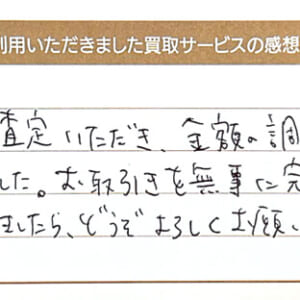 利用いただきました買取サービスの感想
査定いただき、金額の調
した。お取引きを無事に完
ましたら、どうぞよろしくお願い